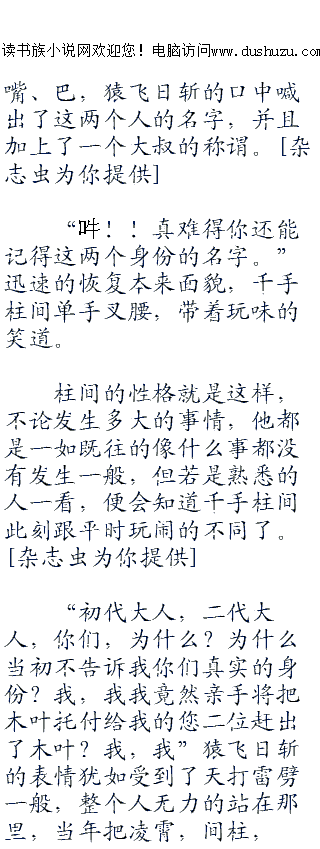 读书族小说网欢迎您！电脑访问www.dushuzu.com
嘴、巴，猿飞日斩的口中喊
出了这两个人的名字，并且
加上了一个大叔的称谓。[杂
志虫为你提供]
“吽！！真难得你还能
记得这两个身份的名字。”
迅速的恢复本来面貌，千手
柱间单手叉腰，带着玩味的
笑道。
柱间的性格就是这样，
不论发生多大的事情，他都
是一如既往的像什么事都没
有发生一般，但若是熟悉的
人一看，便会知道千手柱间
此刻跟平时玩闹的不同了。
[杂志虫为你提供]
“初代大人，二代大
人，你们，为什么？为什么
当初不告诉我你们真实的身
份？我，我我竟然亲手将把
木叶托付给我的您二位赶出
了木叶？我，我”猿飞日斩
的表情犹如受到了天打雷劈
一般，整个人无力的站在那
里，当年把凌霄，间柱，